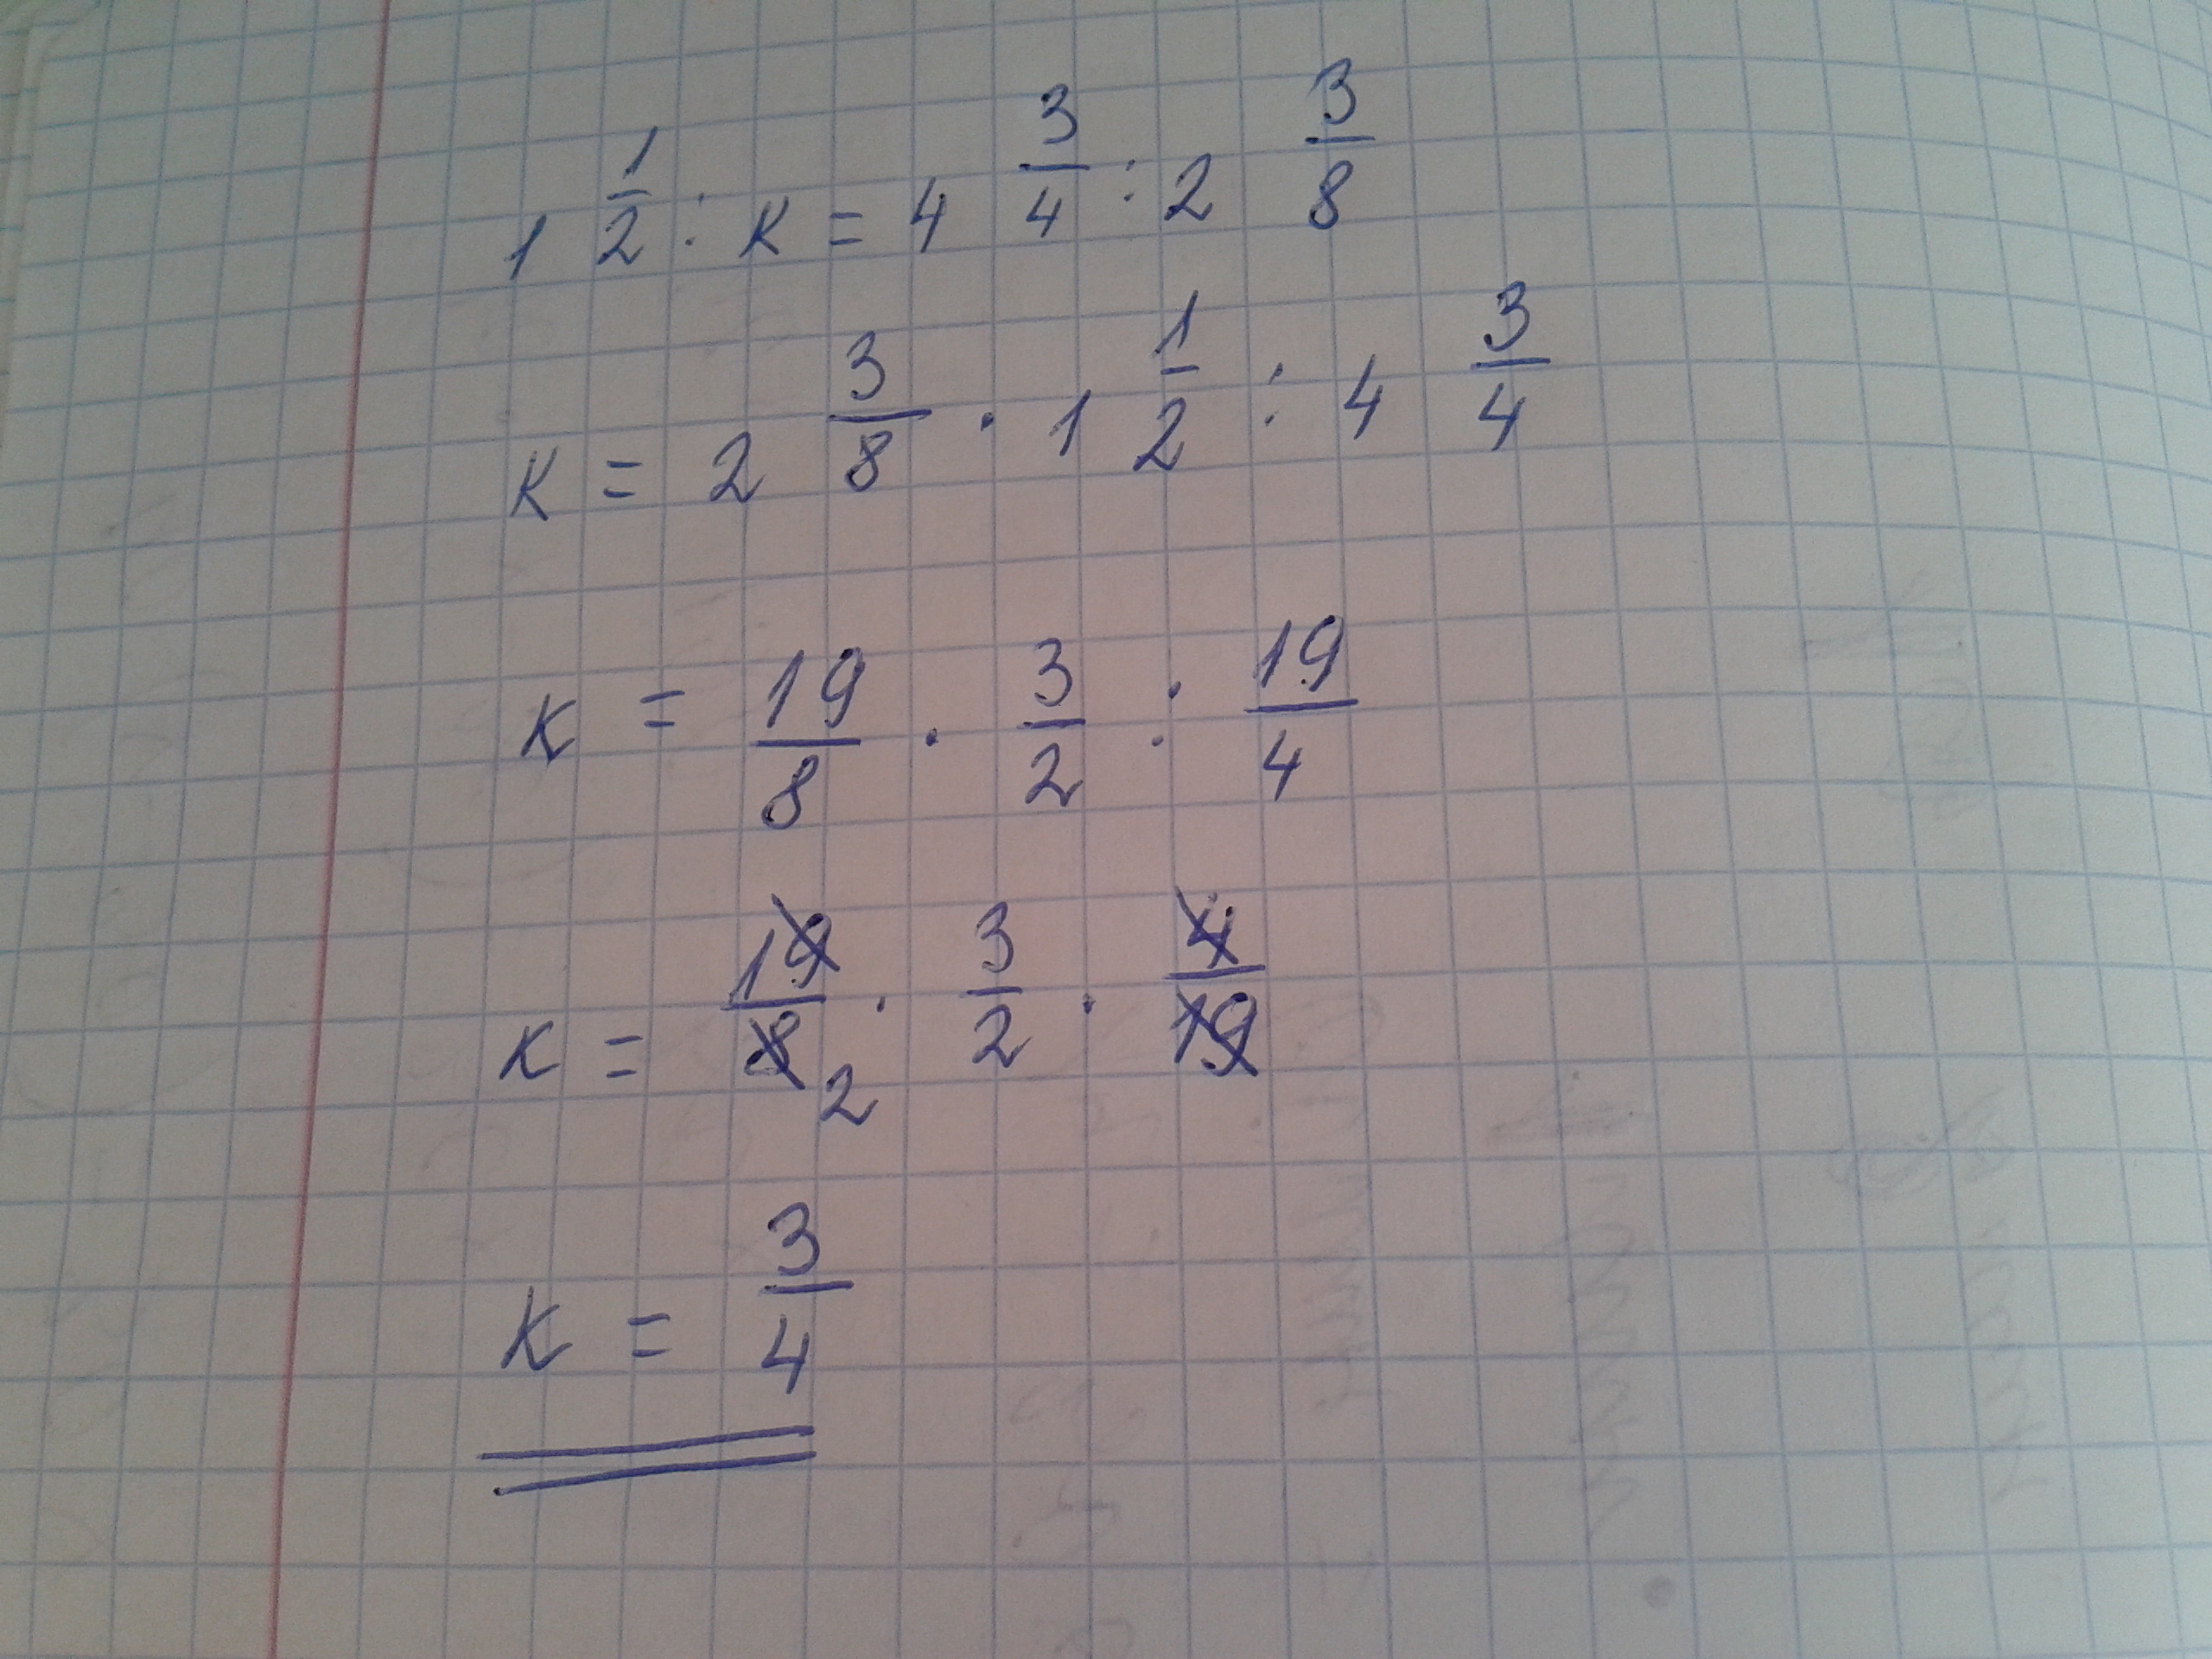 1 1/2 : K = 4 3/4 : 2 3/8
K = 2 3/8 · 1 1/2 : 4 3/4
K = 19/8 · 3/2 : 19/4
K = 19/8 2 · 3/2 · 4/19
K = 3/4